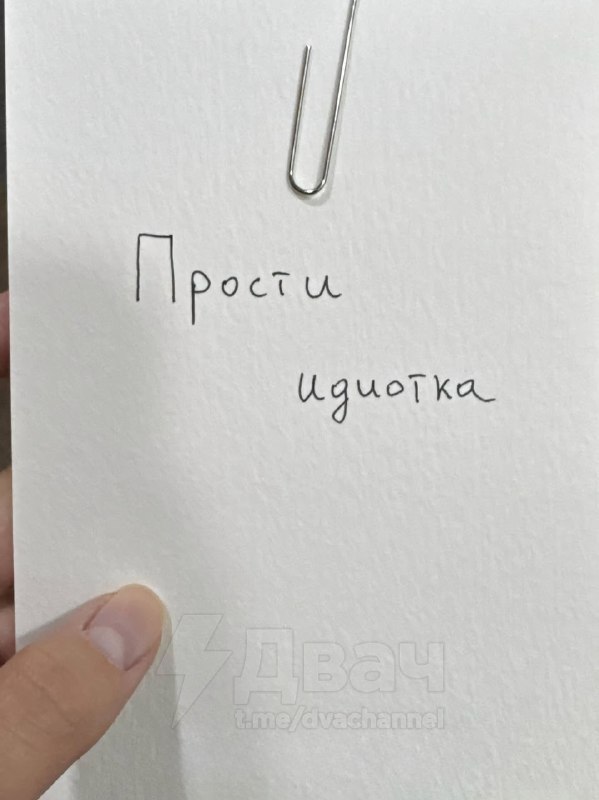 Прости
идиотка
Двач
t.me/dvachannel